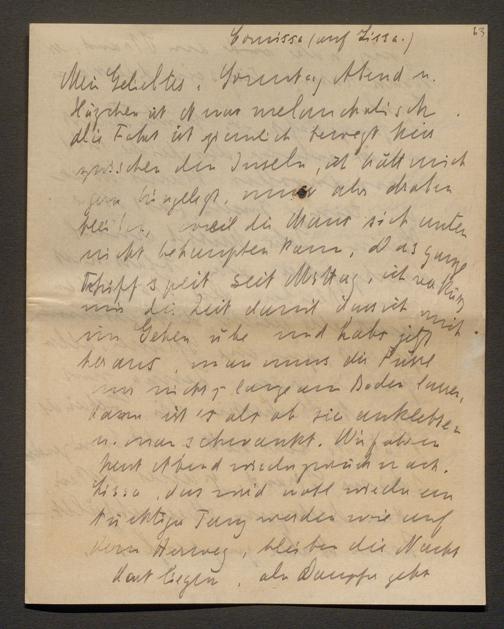 63
Comissa (auf Lissa.)
Mein Geliebtes. Sonntag Abend u.
Häschen ist etwas melancholisch.
die Fahrt ist ziemlich bewegt hier
zwischen den Inseln, ich hätt mich
gern hingelegt, muss aber droben
bleiben, weil die Maus sich unten
nicht behaupten kann. Das ganze
Schiff speit seit Mittag, ich
mir die Zeit damit dass ich mich
im Gehen übe und habe jetzt
heraus, man muss die Füsse
nur nicht zu lange am Boden lassen,
dann ist's als ob sie anklebten
u. man schwankt. Wir fahren
heut Abend wieder zurück nach
Lissa, das wird wohl wieder ein
tüchtiger Tanz werden wie auf
dem Herweg, bleiben die Nacht
dort liegen, der Dampfer geht